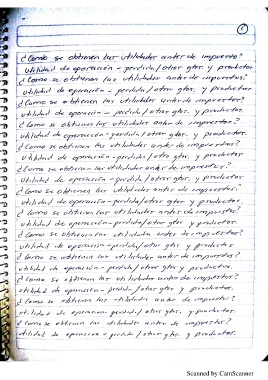 ¿Como se obtienen las utilidades antes de impuesto?
utilidad de operación - perdida/otros gtos. y productos
¿Como se obtienen las utilidades antes de impuestos?
utilidad de operación - perdida/otros gtos. y productos.
¿Como se obtienen las utilidades antes de impuestos?
utilidad de operación - perdida/otros gtos. y productos.
¿Como se obtienen las utilidades antes de impuestos?
utilidad de operación - perdida/otros gtos. y productos.
¿Como se obtienen las utilidades antes de impuestos?
utilidad de operación - perdida/otros gtos. y productos.
¿Como se obtienen las utilidades antes de impuestos?
utilidad de operación - perdida/otros gtos. y productos.
¿Como se obtienen las utilidades antes de impuestos?
utilidad de operación - perdida/otros gtos. y productos.
¿Como se obtienen las utilidades antes de impuestos?
utilidad de operación - perdida/otros gtos. y productos.
¿Como se obtienen las utilidades antes de impuestos?
utilidad de operación - perdida/otros gtos. y productos
¿Como se obtienen las utilidades antes de impuestos?
utilidad de operación - perdida/otros gtos. y productos
¿Como se obtienen las utilidades antes de impuestos?
utilidad de operación - perdida/otros gtos. y productos.
¿Como se obtienen las utilidades antes de impuestos?
utilidad de operación - perdida/otros gtos. y productos.
¿Como se obtienen las utilidades antes de impuestos?
utilidad de operación - perdida/otros gtos. y productos.
Scanned by CamScanner